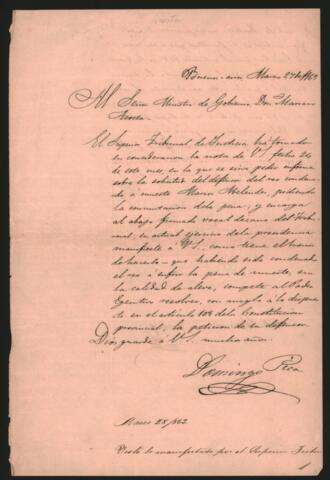 Buenos Aires Marzo 27 de 1862
Al Señor Ministro de Gobierno Don Mariano
Acosta
El Superior Tribunal de Justicia ha tomado
en consideracion la nota de V.S. fecha 26
de este mes, en la que se sirve pedir informe
sobre la solicitud del defensor del reo condenado
á muerte Marco Melendez, pidiendo
la conmutacion de la pena; y encarga
al abajo firmado vocal decano del Tribunal,
en actual ejercicio de la presidencia
manifieste á V.S., como tiene el honor
de hacerlo – que habiendo sido condenado
el reo á sufrir la pena de muerte, con
la calidad de aleve, compete al Poder
Ejecutivo resolver, con arreglo á lo dispuesto
en el articulo 108 de la Constitucion
provincial, la peticion de su defensor.
Dios guarde á V.S. muchos años.
Domingo Pica
Marzo 28/862
Visto lo manifestado por el Superior Tribu